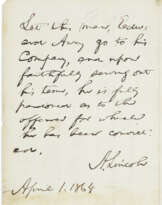 Let this man,
and Avery go to his
Company, and upon
faithfully serving out
his term, he is fully
pardoned as to the
offence for which
he has been convict-
ed.
A. Lincoln
April 1. 1864